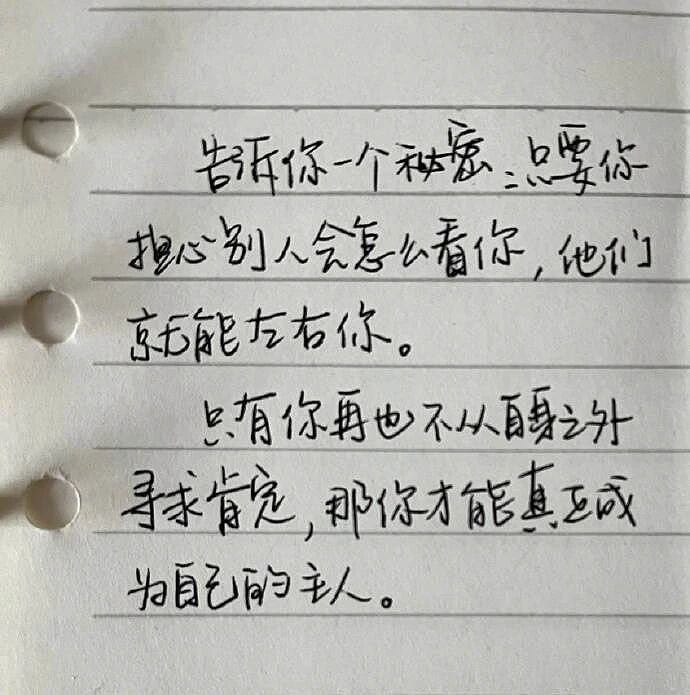 告诉你一个秘密:只要你
担心别人会怎么看你,他们
就能左右你。
只有你再也不从自身之外
寻求肯定,那你才能真正成
为自己的主人。